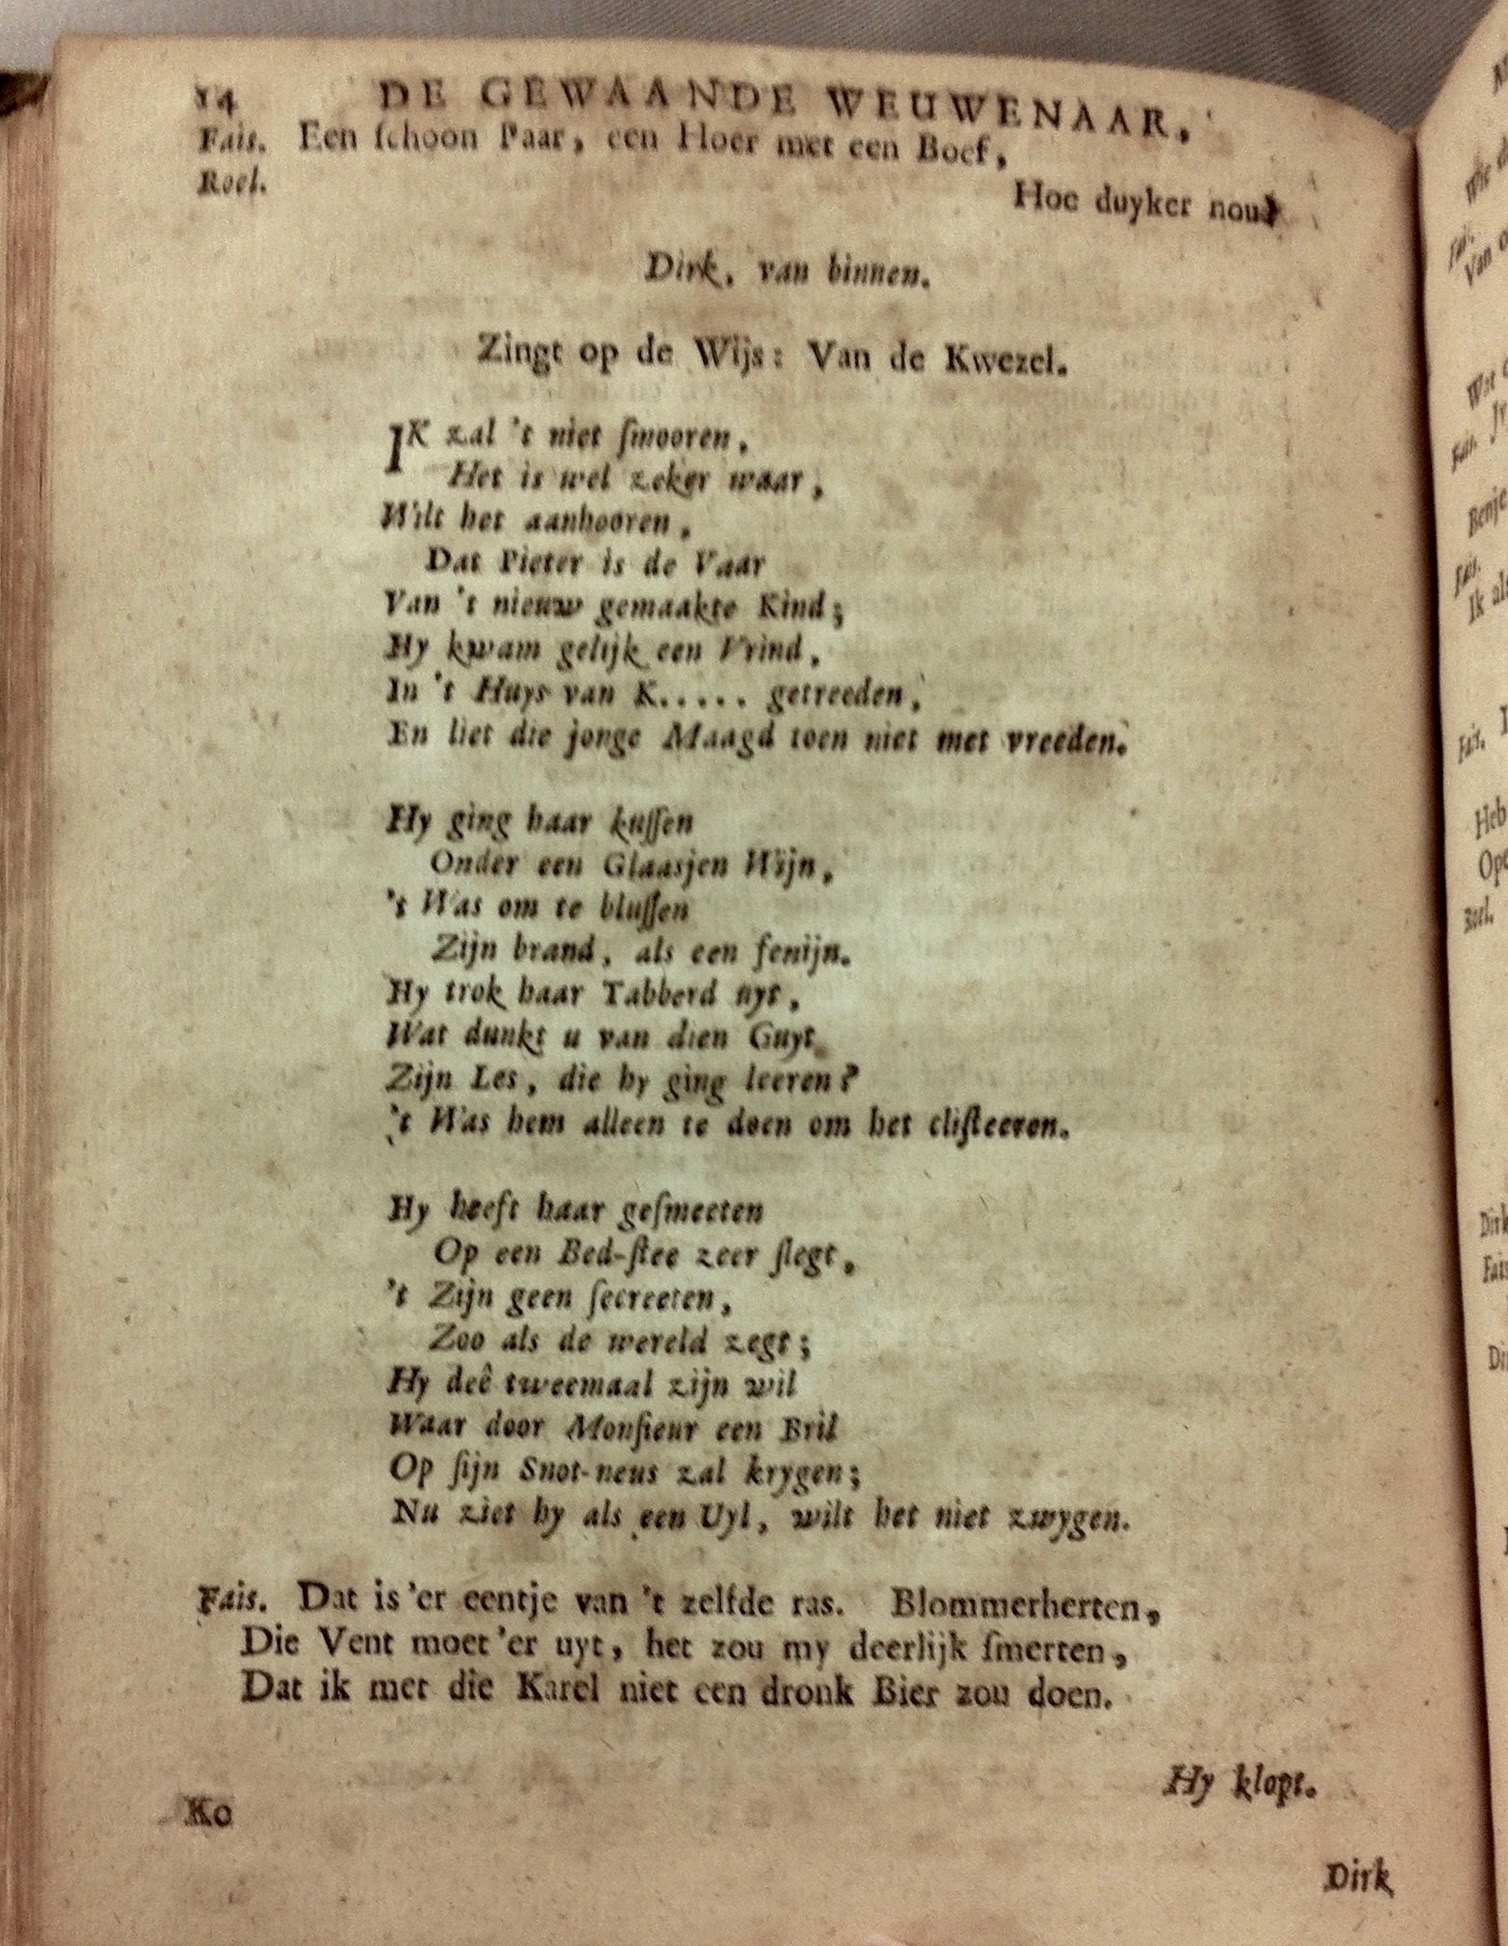 14 DE GEWAANDE WEUWENAAR,
Fais. Een ſchoon Paar, een Hoer met een Boef,
Roel. Hoe duyker nou?
Dirk, van binnen.
Zingt op de Wijs: Van de Kwezel.
IK zal 't niet ſmooren,
Het is wel zeker waar,
Wilt het aanhooren,
Dat Pieter is de Vaar
Van 't nieuw gemaakte Kind;
Hy kwam gelijk een Vrind,
In 't Huys van K..... getreeden,
En liet die jonge Maagd toen niet met vreeden.
Hy ging haar kuſſen
Onder een Glaasjen Wijn,
't Was om te bluſſen
Zijn brand, als een fenijn.
Hy trok haar Tabberd uyt,
Wat dunkt u van dien Guyt
Zijn Les, die hy ging leeren?
't Was hem alleen te doen om het cliſteeren.
Hy heeft haar geſmeeten
Op een Bed-ſtee zeer ſlegt,
't Zijn geen ſecreeten,
Zoo als de wereld zegt;
Hy deê tweemaal zijn wil
Waar door Monſieur een Bril
Op ſijn Snot-neus zal krygen;
Nu ziet hy als een Uyl, wilt het niet zwygen.
Fais. Dat is 'er eentje van 't zelfde ras. Blommerherten,
Die Vent moet 'er uyt, het zou my deerlijk ſmerten,
Dat ik met die Karel niet een dronk Bier zou doen.
Hy klopt.
Ko
Dirk